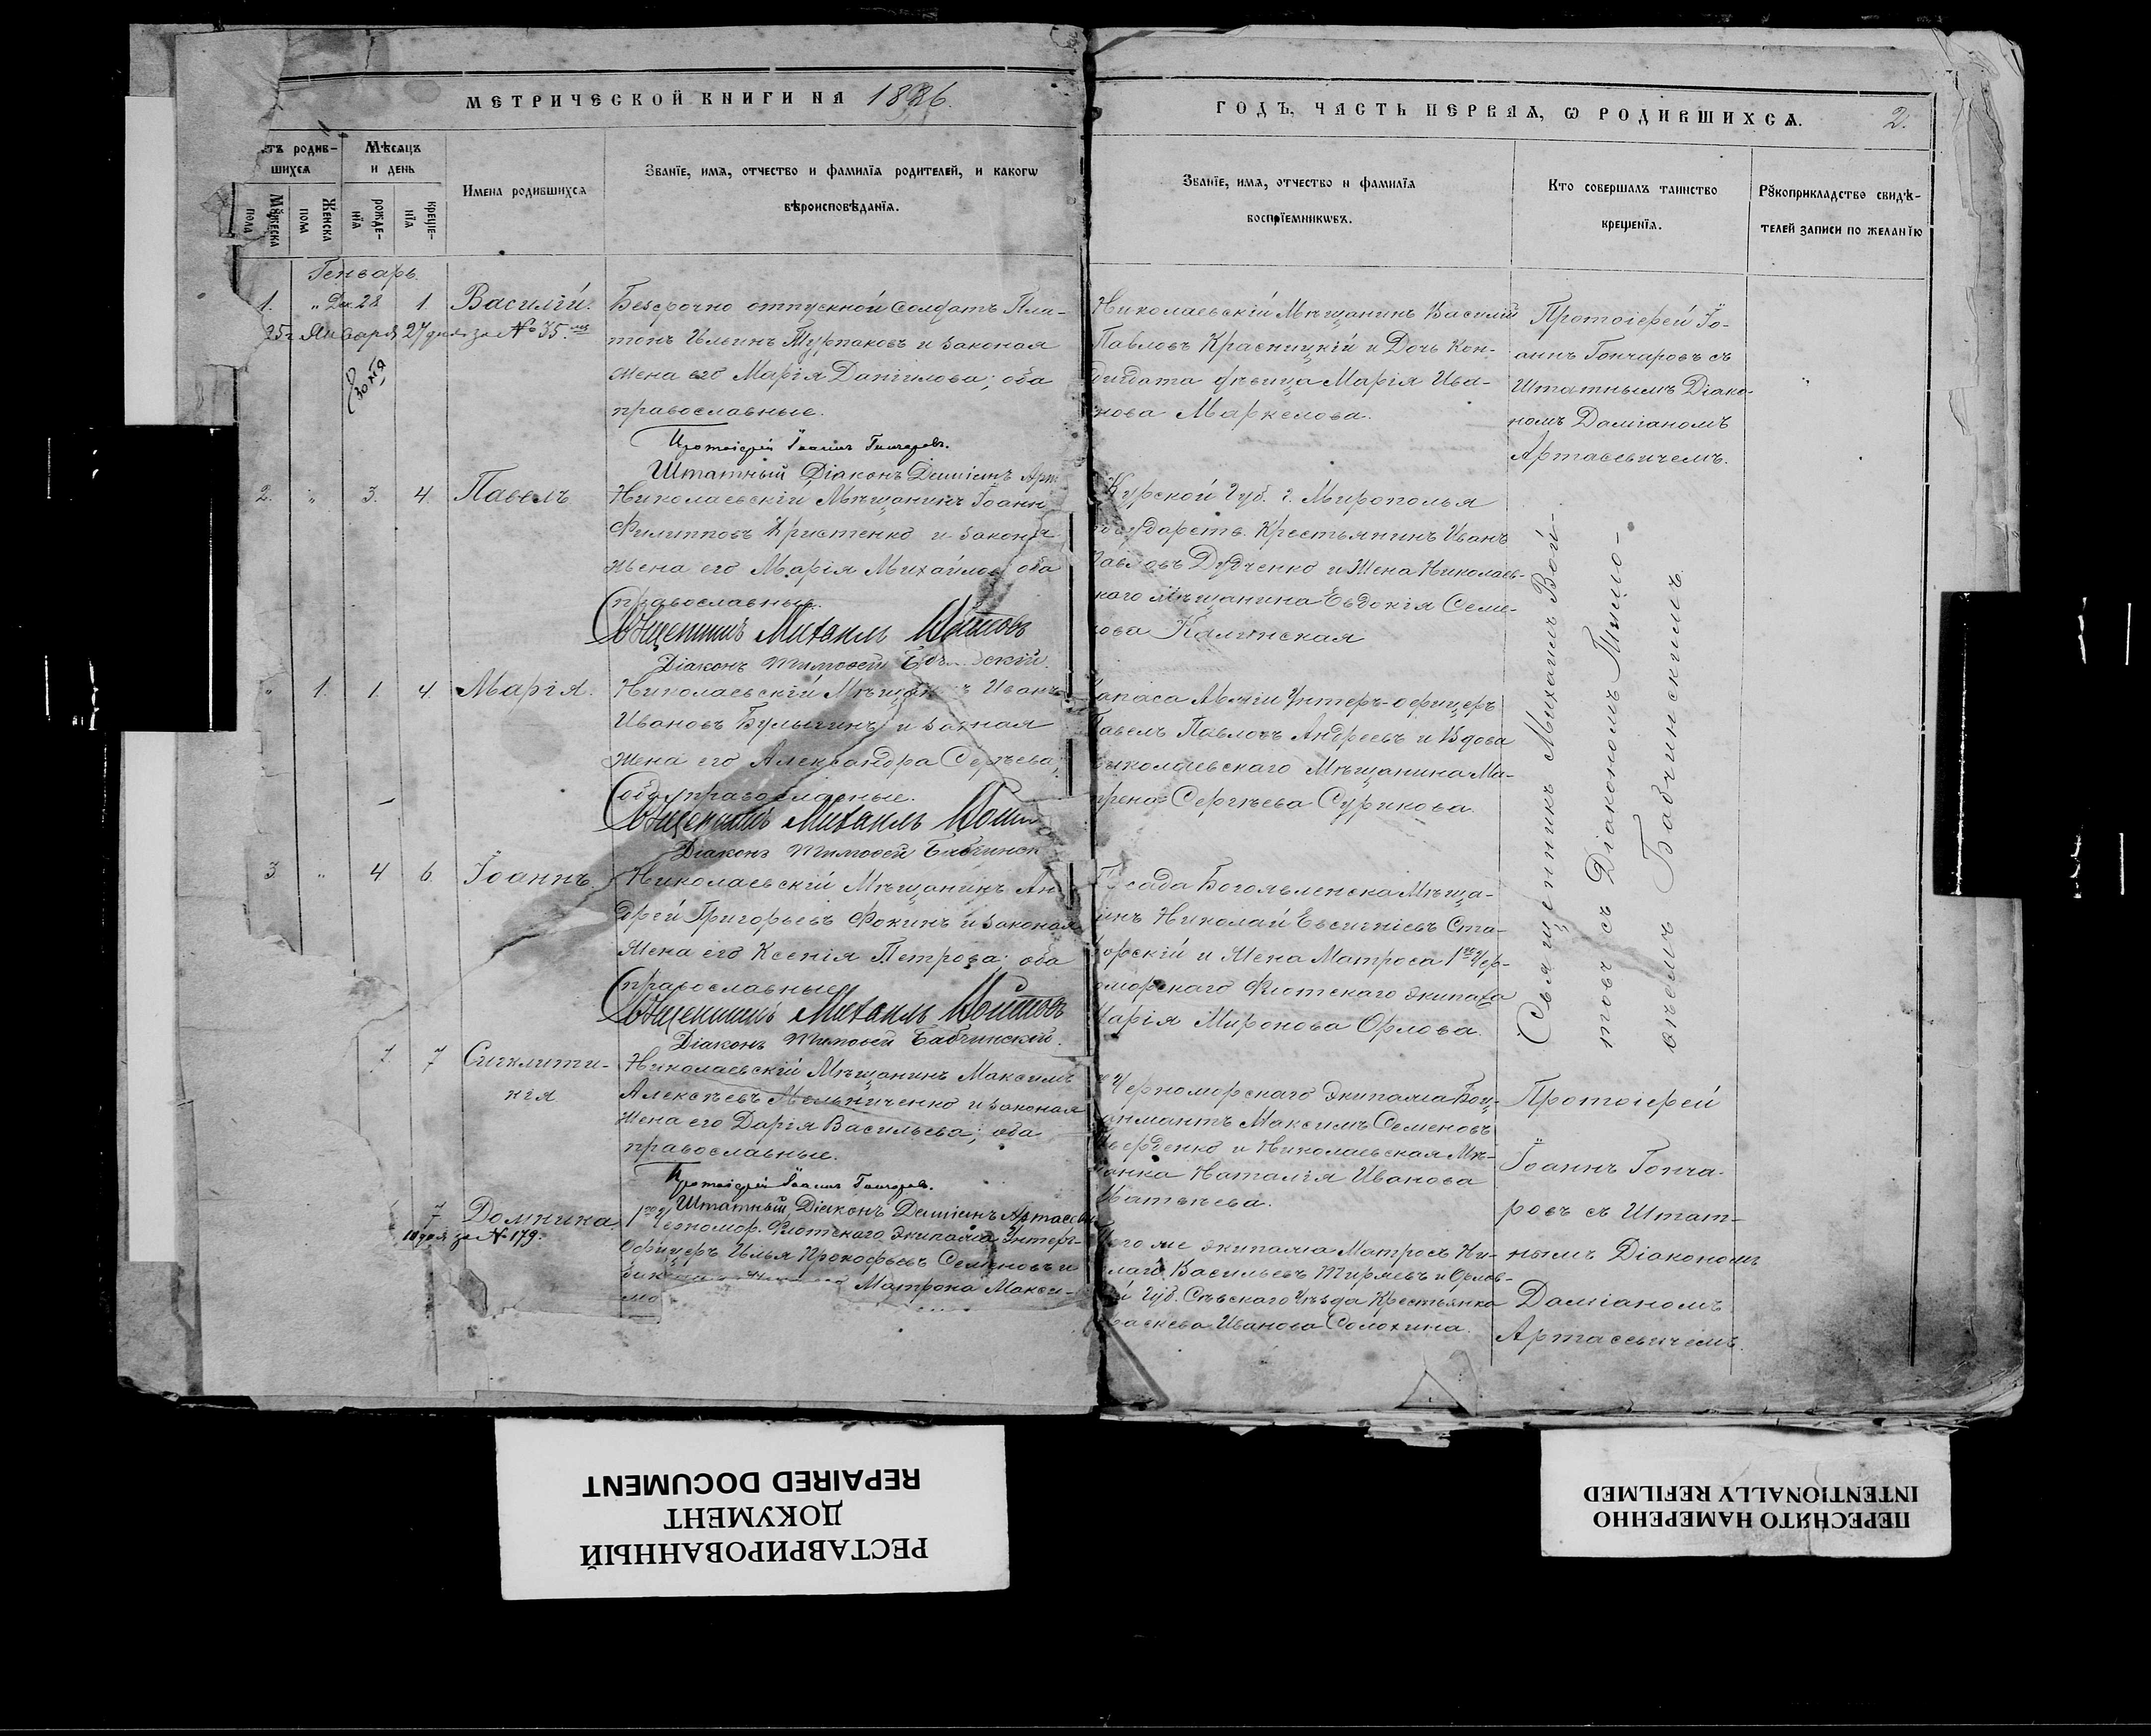 МЕТРИЧЕСКОЙ КНИГИ НА 1886.
ГОДЪ, ЧАСТЬ ПЕРВАЯ, Ѡ РОДИВШИХСѦ.
2.
родив-
шихсѧ
Мѣсѧцъ
и день
Имена родившихсѧ
Званїе, имѧ, отчество и фамилїѧ родителей, и какогѡ
вѣроисповѣданїѧ.
Мꙋжеска
пола
Женска
пола
рожде-
нїѧ
креще-
нїѧ
Званїе, имѧ, отчество и фамилїѧ
воспрїемникѡвъ.
Кто совершалъ таинство
крещенїѧ.
Рꙋкоприкладство свидѣ-
телей записи по желанїю
Генварь.
1. " Дек. 28 1 Василій.
Января 27 дня за № 35.
Безсрочно отпускной солдатъ Пла-
тонъ Ильинъ Турпаковъ и законая
жена его Марія Даніилова; оба
православные.
Протоіерей Іоаннъ Гончаровъ.
Штатный Діаконъ Даміанъ
Николаевскій Мѣщанинъ Василій
Павловъ Красницкій и Дочь Кон-
дѣвица Марія Ива-
нова Маркелова.
Протоіерей Іо-
аннъ Гончаровъ съ
Штатнымъ Діако-
номъ Даміаномъ
Артасевичемъ.
2. " 3. 4. Павелъ
Николаевскій Мѣщанинъ Іоаннъ
Филипповъ Христенко и законая
жена его Марія Михайлова оба
православные.
Священникъ Михаилъ Войтовъ
Діаконъ Тимофей
Курской Губ. г. Мирополья
Государств. Крестьянинъ Иванъ
Павловъ Дудченко и Жена Николаев-
скаго мѣщанина Евдокія Семе-
нова Калинская
" 1. 1. 4. Марія.
Николаевскій Мѣщан Иванъ
Ивановъ Булыгинъ и
жена его Александра Сергѣева;
оба православные.
Священникъ Михаилъ Войтов
Діаконъ Тимофей Бабчинск
Запаса Арміи Унтеръ-офицеръ
Павелъ Павловъ Андреевъ и Вдова
Николаевскаго Мѣщанина Ма-
трена Сергѣева Сурикова.
Священникъ Михаилъ Вой-
товъ съ Діакономъ Тимо-
фѣемъ Бабчинскимъ.
3. " 4 6. Іоаннъ.
Николаевскій Мѣщанинъ Ан-
дрей Григорьевъ Фокинъ и законая
жена его Ксенія Петрова; оба
православные
Священникъ Михаилъ Войтовъ
Діаконъ Тимофей Бабчинскій.
Посада Богоявленска Мѣща-
нинъ Николай Евсигніевъ Ста-
и Жена Матроса 1го Чер-
номорскаго Флотскаго экипажа
Марія Миронова Орлова.
7. 7 Сигклити-
кія
Николаевскій Мѣщанинъ Максимъ
Алексѣевъ Мельниченко и законая
жена его Дарія Васильева; оба
православные.
Протоіерей Іоаннъ Гончаровъ.
Штатный Діаконъ Даміанъ Артасеви
Черноморскаго Экипажа Боц-
манматъ Максимъ Семеновъ
и Николаевская Мѣ-
щанка Наталія Иванова
Матвѣева.
Протоіерей
Іоаннъ Гонча-
ровъ съ Штат-
нымъ Діакономъ
Даміаномъ
Артасевичемъ.
7 Домника.
за № 179.
1го Черномор. Флотскаго Экипажа Унтеръ-
Офицеръ Илья Прокофьевъ Семеновъ и
Матрона Макси-
мо
Того же экипажа Матросъ Ни-
колай Васильевъ Тиряевъ и Орлов-
ской Губ. Сѣвскаго Уѣзда Крестьянка
Иванова Солохина.
РЕСТАВРИРОВАННЫЙ
ДОКУМЕНТ
REPAIRED DOCUMENT
ПЕРЕСНЯТО НАМЕРЕННО
INTENTIONALLY REFILMED